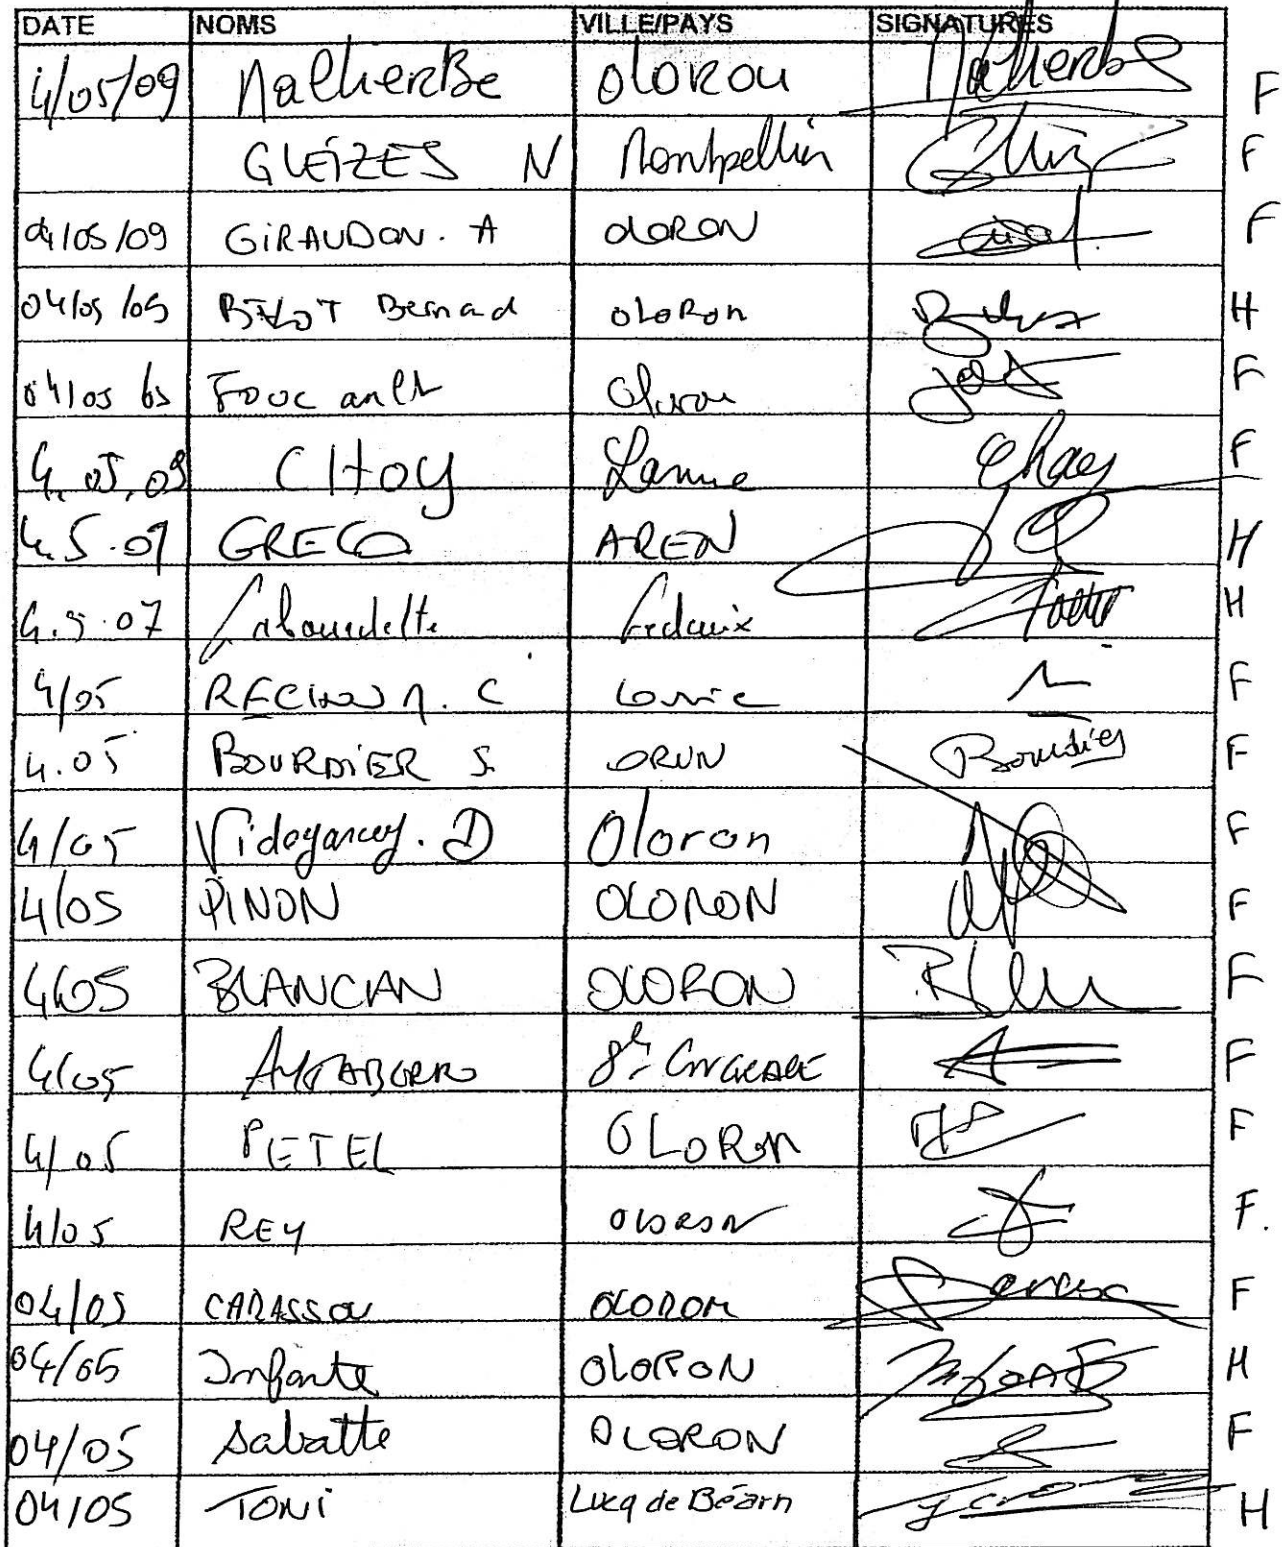 DATE NOMS VILLE/PAYS SIGNATURES
4/05/09 MalherBe OLOROU Malherbe F
GLEIZES N Montpellier F
04/05/09 GIRAUDON. A OLORON F
04/05/09 Bernard OLORON H
04/05 Foucault Oloron F
4.05.09 CHOY Lanne Choy F
4.5.09 GRECO AREN H
4.5.07 Labourdette Ledeuix H
4/05 C F
4.05 BOURDIER S. ORUN Bourdier F
4/05 D Oloron F
4/05 PINON OLORON F
4/05 BLANCHAN OLORON F
4/05 F
4/05 PETEL OLORON F
4/05 REY OLORON F.
04/05 CARASSOU OLORON F
04/05 Infante OLORON H
04/05 Sabatte OLORON F
04/05 TONI Lucq de Béarn H